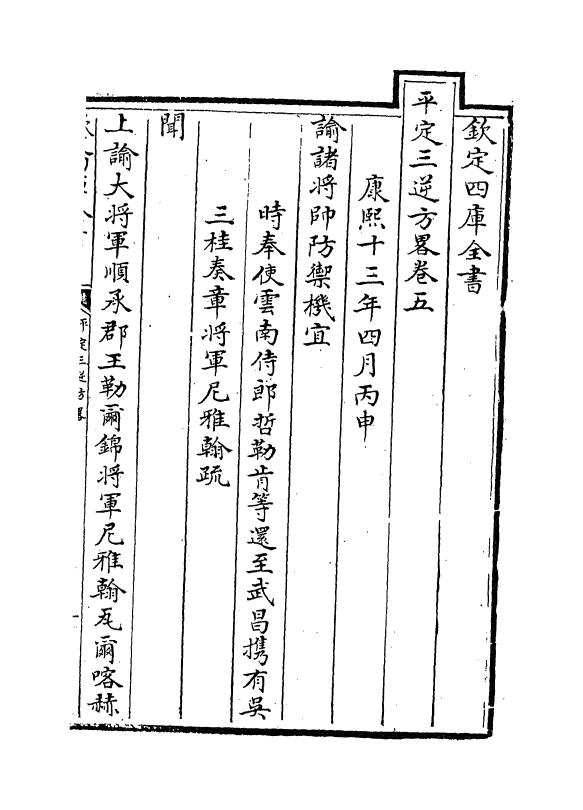 欽定四庫全書
平定三逆方畧卷五
康熙十三年四月丙申
諭諸将帥防禦機宜
時奉使雲南侍郎哲勒肯等還至武昌攜有吳
三桂奏章将軍尼雅翰疏
聞
上諭大将軍順承郡王勒爾錦将軍尼雅翰瓦爾喀赫
平定三逆方畧